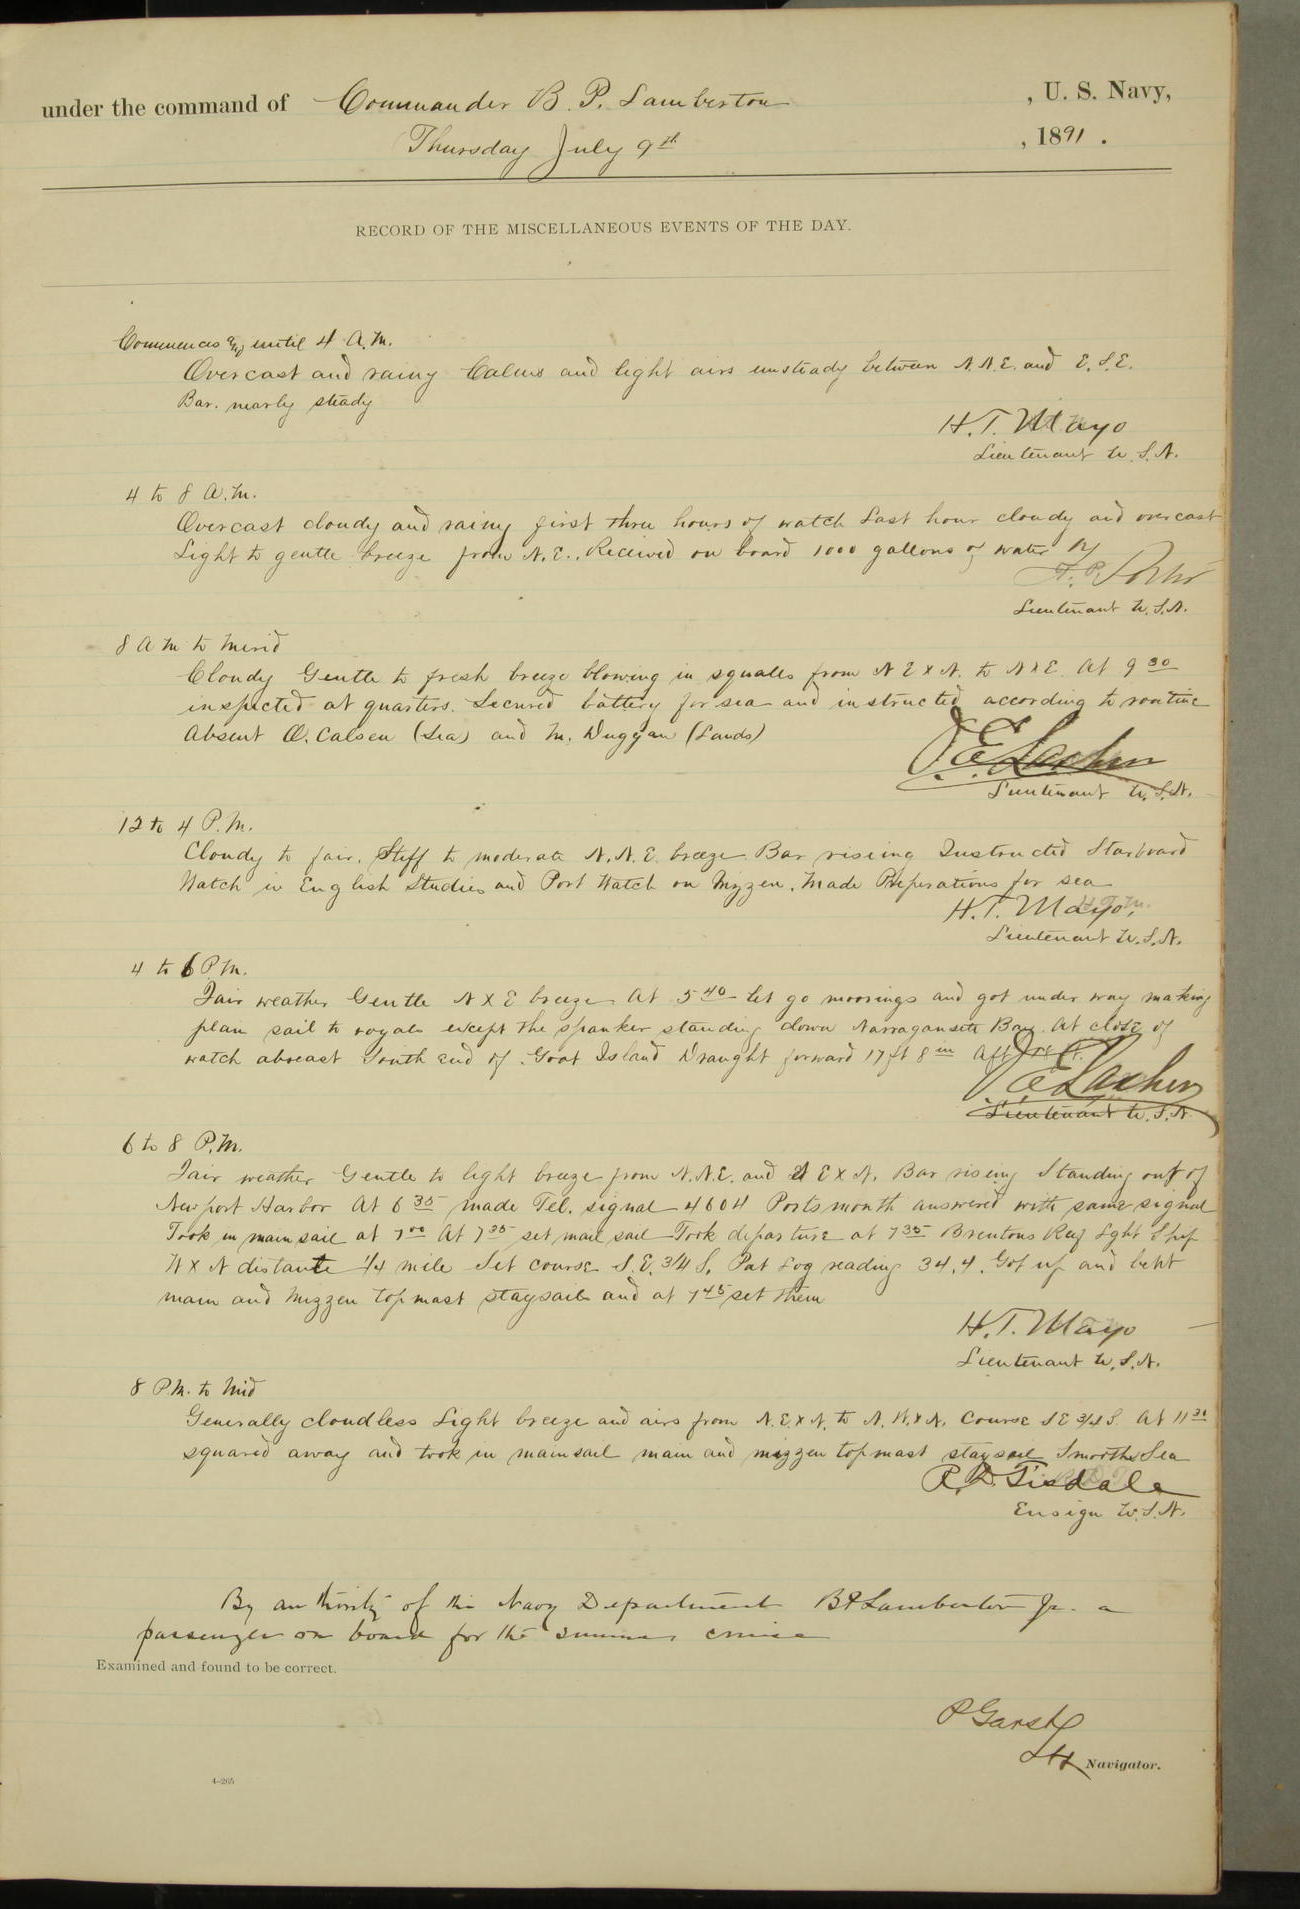 under the command of Commander B. P. Lamberton , U. S. Navy,
Thursday July 9th , 1891 .
RECORD OF THE MISCELLANEOUS EVENTS OF THE DAY.
Commences and until 4 A.M.
Overcast and rainy Calms and light airs unsteady between N.N.E. and E.S.E.
Bar. nearly steady
H.T. Mayo
Lieutenant U.S.N.
4 to 8 A.M.
Overcast cloudy and rainy first three hours of watch Last hour cloudy and overcast
Light to gentle breeze from N.E. Received on board 1000 gallons of water
Lieutenant U.S.N.
8 A M to Merid
Cloudy Gentle to fresh breeze blowing in squalls from N E x N. to N x E. At 9 30
inspected at quarters. Secured battery for sea and instructed according to routine
Absent O. Calsen (Sea) and M. Duggan (Lands)
Lieutenant U.S.N.
12 to 4 P.M.
Cloudy to fair. Stiff to moderate N.N.E. breeze Bar rising Instructed Starboard
Watch in English Studies and Port Watch on Mizzen. Made Preperations for sea
H.T. Mayo,
Lieutenant U.S.N.
4 to 6 P M.
Fair weather Gentle N x E breeze At 5 40 let go moorings and got under way making
plain sail to royals except the spanker standing down Narragansett Bay. At close of
watch abreast South end of Goat Island Draught forward 17 ft 8 in Aft
Lieutenant U.S.N.
6 to 8 P.M.
Fair weather Gentle to light breeze from N.N.E. and N E x N. Bar rising Standing out of
Newport Harbor At 6 35 made Tel. signal 4604 Portsmouth answered with same signal
Took in mainsail at 7 00 At 7 35 set mail sail Took departure at 7 35 Brentons Reef Lght Ship
W x N distante 1/4 mile Set course S.E. 3/4 S. Pat Log reading 34.4. Got up and bent
main and mizzen topmast staysails and at 7 45 set them
H.T. Mayo
Lieutenant U.S.N.
8 P.M. to Mid
Generally cloudless Light breeze and airs from N.E. x N. to N. W. x N. Course S E 3/4 S. At 11 30
squared away and took in mainsail main and mizzen topmast staysail Smooth Sea
R. D. Tisdale
Ensign U.S.N.
By authority of the Navy Department B P Lamberton Jr. a
passenger on board for the summer cruise
Examined and found to be correct.
P Garst
Lt Navigator.
4—265